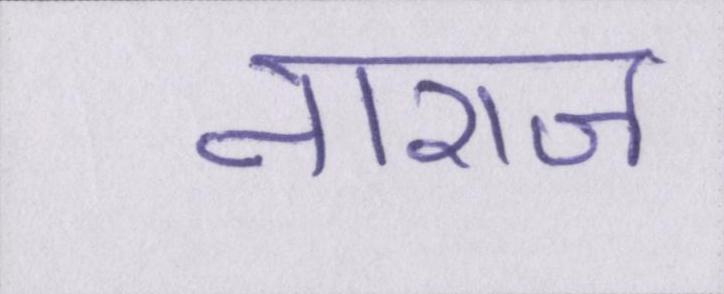 नाराज